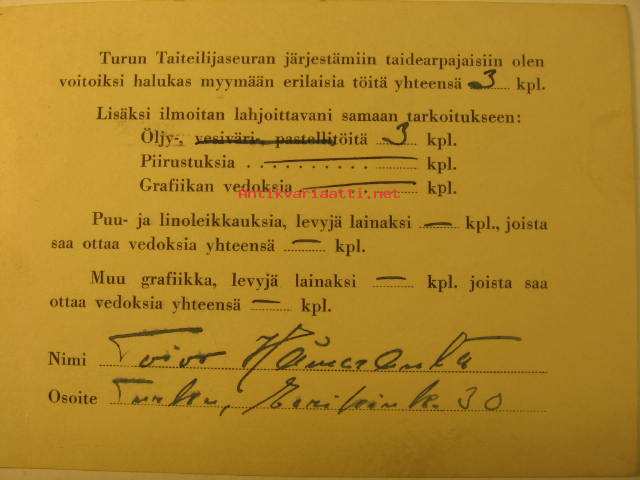 Turun Taiteilijaseuran järjestämiin taidearpajaisiin olen
voitoiksi halukas myymään erilaisia töitä yhteensä 3 kpl.
Lisäksi ilmoitan lahjoittavani samaan tarkoitukseen:
Öljy-, vesiväri-, pastellitöitä 3 kpl.
Piirustuksia — kpl.
Grafiikan vedoksia — kpl.
Antikvariaatti.net
Puu- ja linoleikkauksia, levyjä lainaksi — kpl., joista
saa ottaa vedoksia yhteensä — kpl.
Muu grafiikka, levyjä lainaksi — kpl. joista saa
ottaa vedoksia yhteensä — kpl.
Nimi Toivo Hämeranta
Osoite Turku, Eerikink. 30